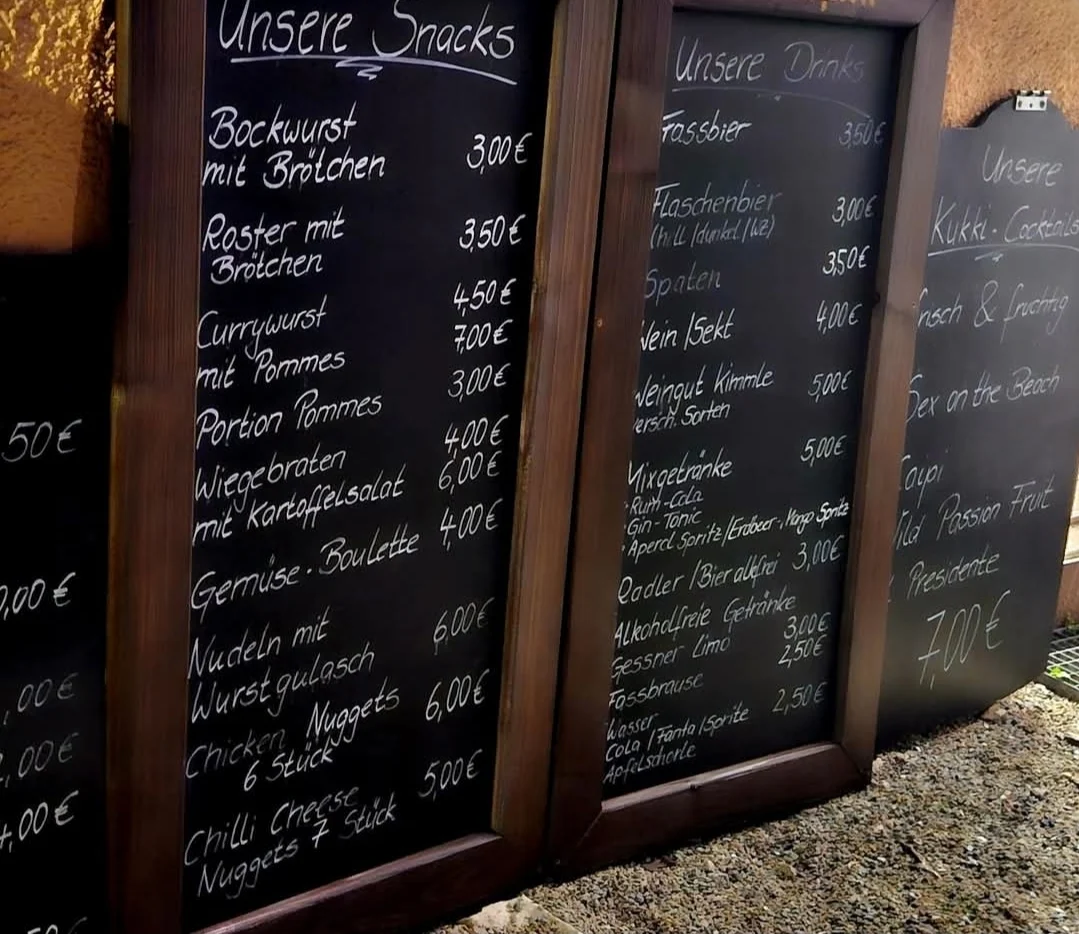 50€
0,00€
,00€
,00€
4,00€
Unsere Snacks
Bockwurst
mit Brötchen 3,00€
Roster mit 3,50€
Brötchen
Currywurst 4,50€
mit Pommes 7,00€
Portion Pommes 3,00€
Wiegebraten 4,00€
mit Kartoffelsalat 6,00€
Gemüse-Boulette 4,00€
Nudeln mit 6,00€
Wurstgulasch
Chicken Nuggets 6,00€
6 Stück
Chilli Cheese 5,00€
Nuggets 7 Stück
Unsere Drinks
Fassbier 3,50€
Flaschenbier 3,00€
(hell/dunkel/WZ)
Spaten 3,50€
Wein/Sekt 4,00€
Weingut Kimmle 5,00€
versch. Sorten
Mixgetränke 5,00€
·Rum-Cola
·Gin-Tonic
·Aperol Spritz/Erdbeer-, Mango Spritz
Radler/Bier alkfrei 3,00€
Alkoholfreie Getränke
Gessner Limo 3,00€
Fassbrause 2,50€
Wasser
Cola/Fanta/Sprite 2,50€
Apfelschorle
Unsere
Kukki-Cocktails
frisch & fruchtig
Sex on the Beach
Caipi
Wild Passion Fruit
Presidente
7,00€